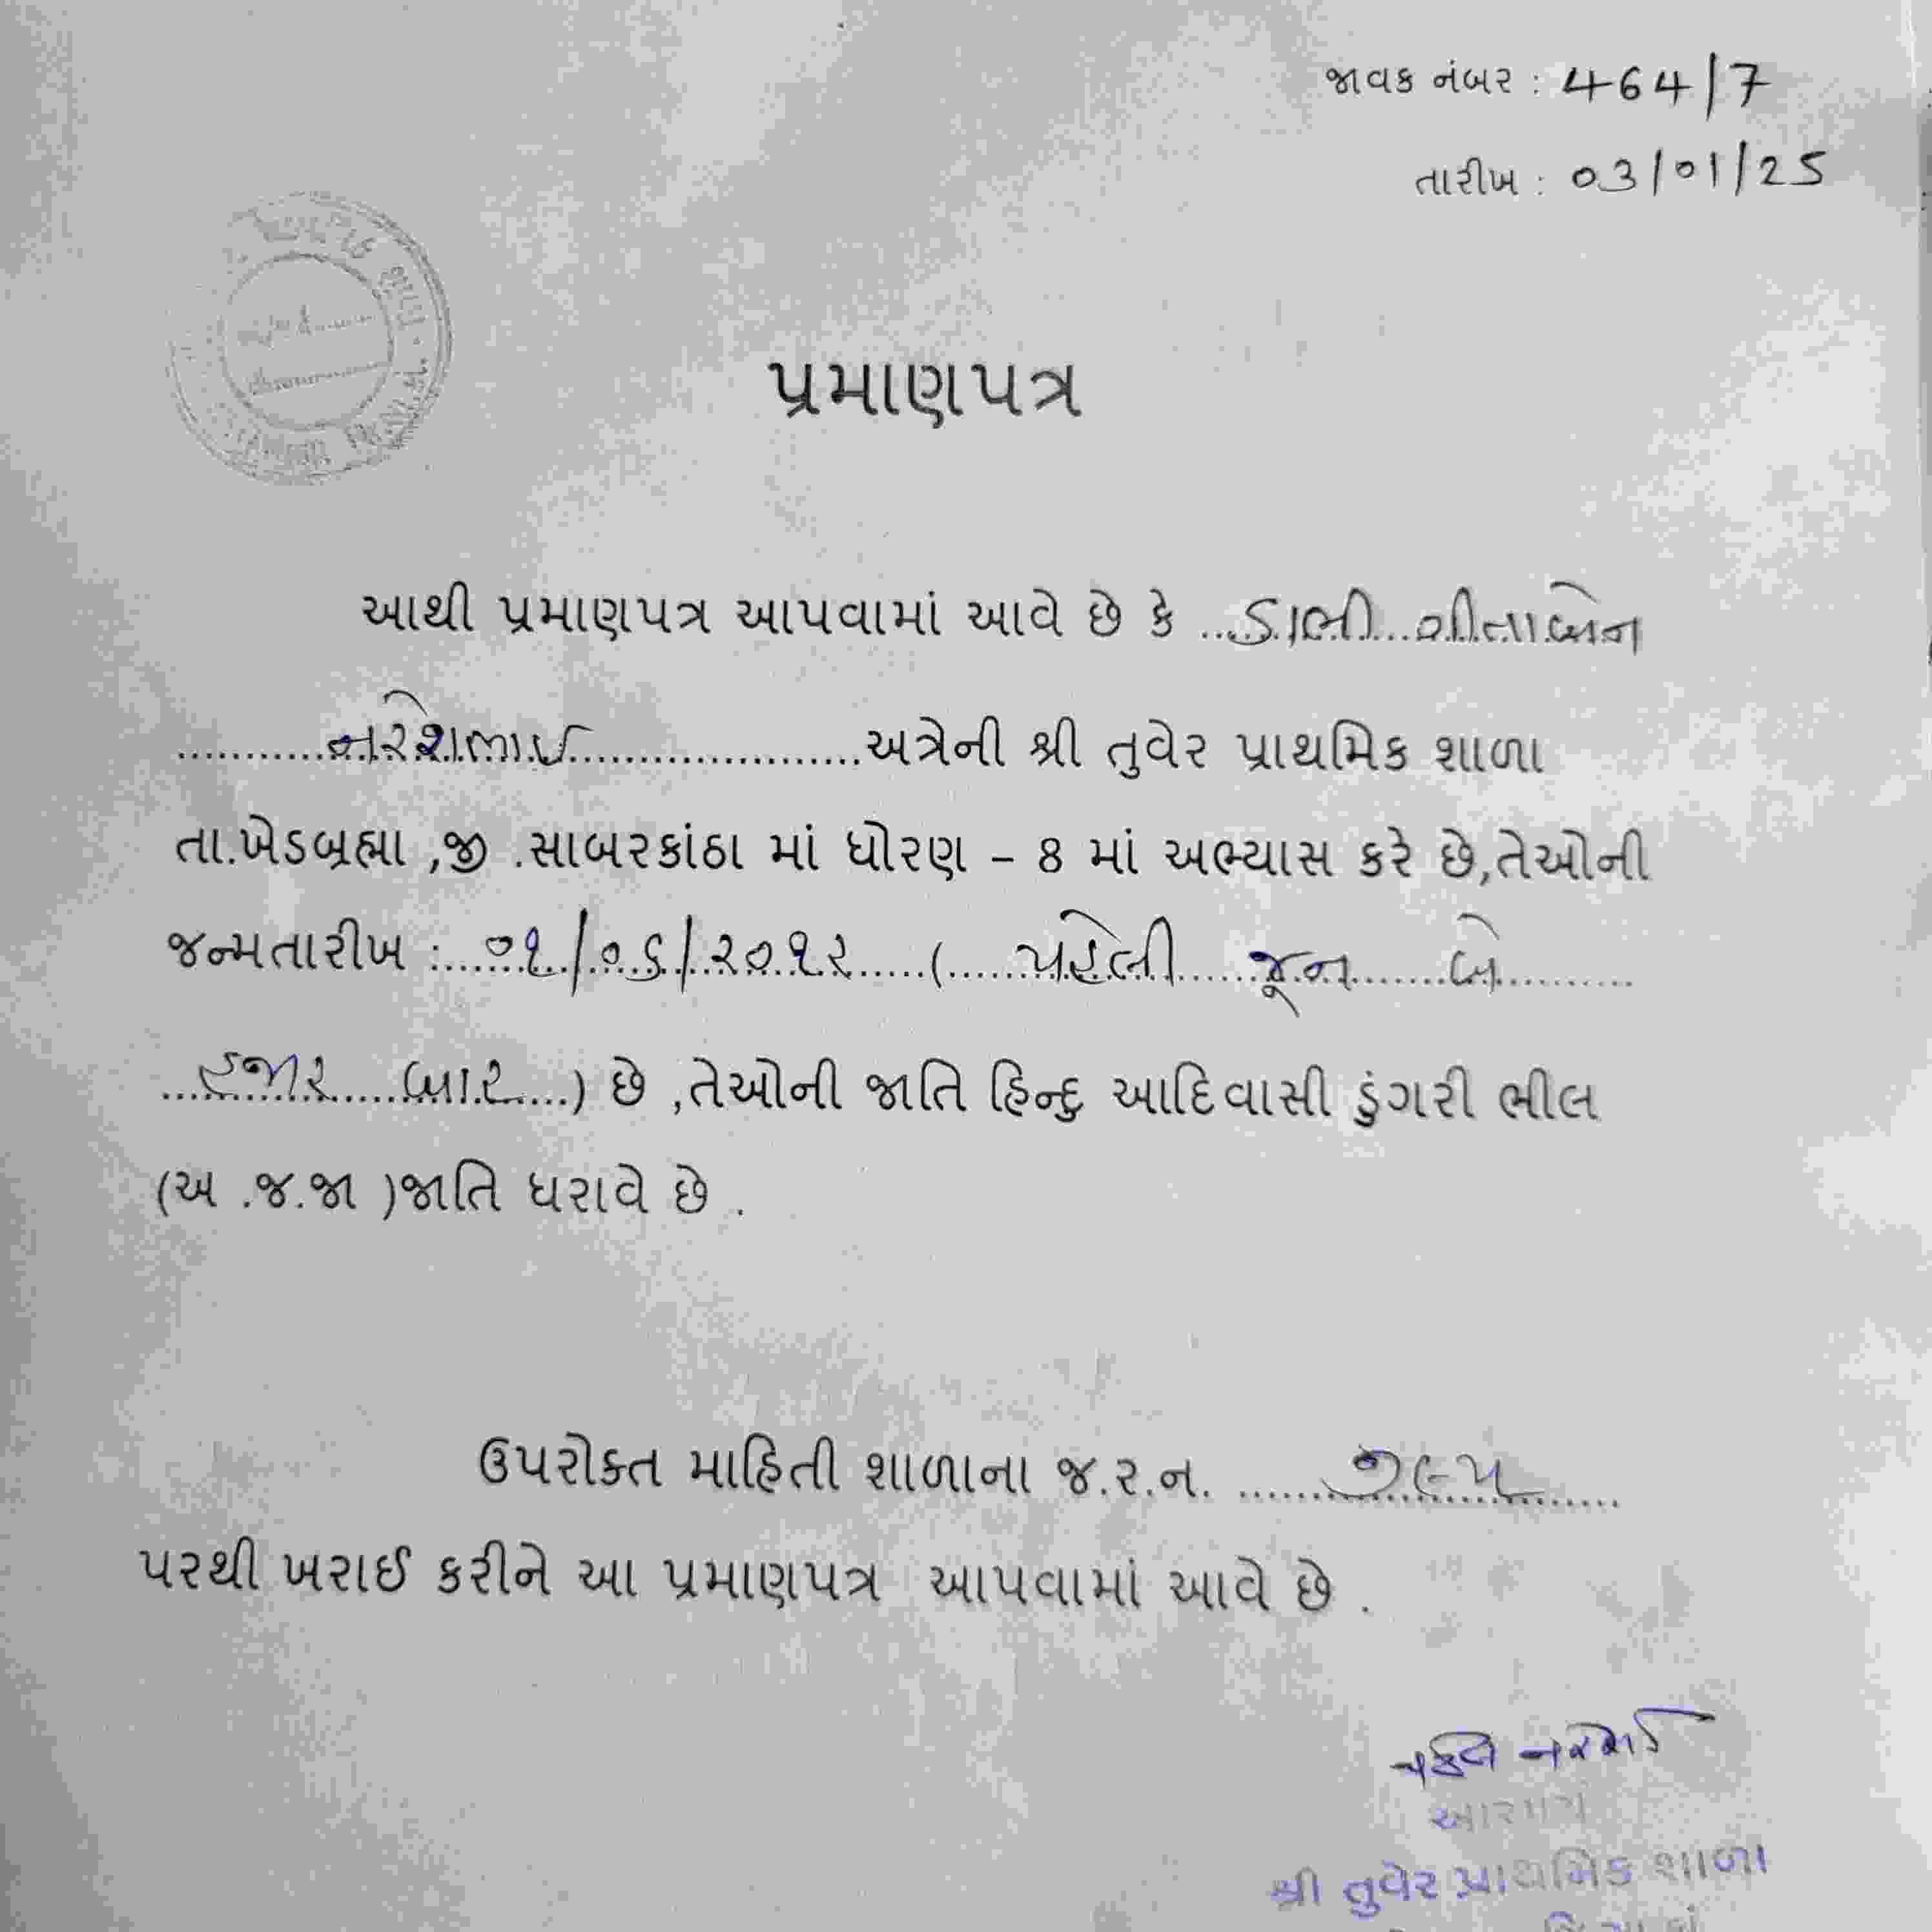 જાવક નંબર : 464/7
તારીખ : 03/01/25
પ્રમાણપત્ર
આથી પ્રમાણપત્ર આપવામાં આવે છે કે ...ડાભી...ગીતાબેન
............નરેશભાઈ......................અત્રેની શ્રી તુવેર પ્રાથમિક શાળા
તા.ખેડબ્રહ્મા ,જી .સાબરકાંઠા માં ધોરણ – 8 માં અભ્યાસ કરે છે,તેઓની
જન્મતારીખ :....૦૧/૦૬/૨૦૧૨.....(.....પહેલી.....જૂન......બે..........
...હજાર.....બાર....) છે ,તેઓની જાતિ હિન્દુ આદિવાસી ડુંગરી ભીલ
(અ .જ.જા )જાતિ ધરાવે છે .
ઉપરોક્ત માહિતી શાળાના જ.ર.ન.
પરથી ખરાઈ કરીને આ પ્રમાણપત્ર આપવામાં આવે છે .
શ્રી તુવેર પ્રાથમિક શાળા